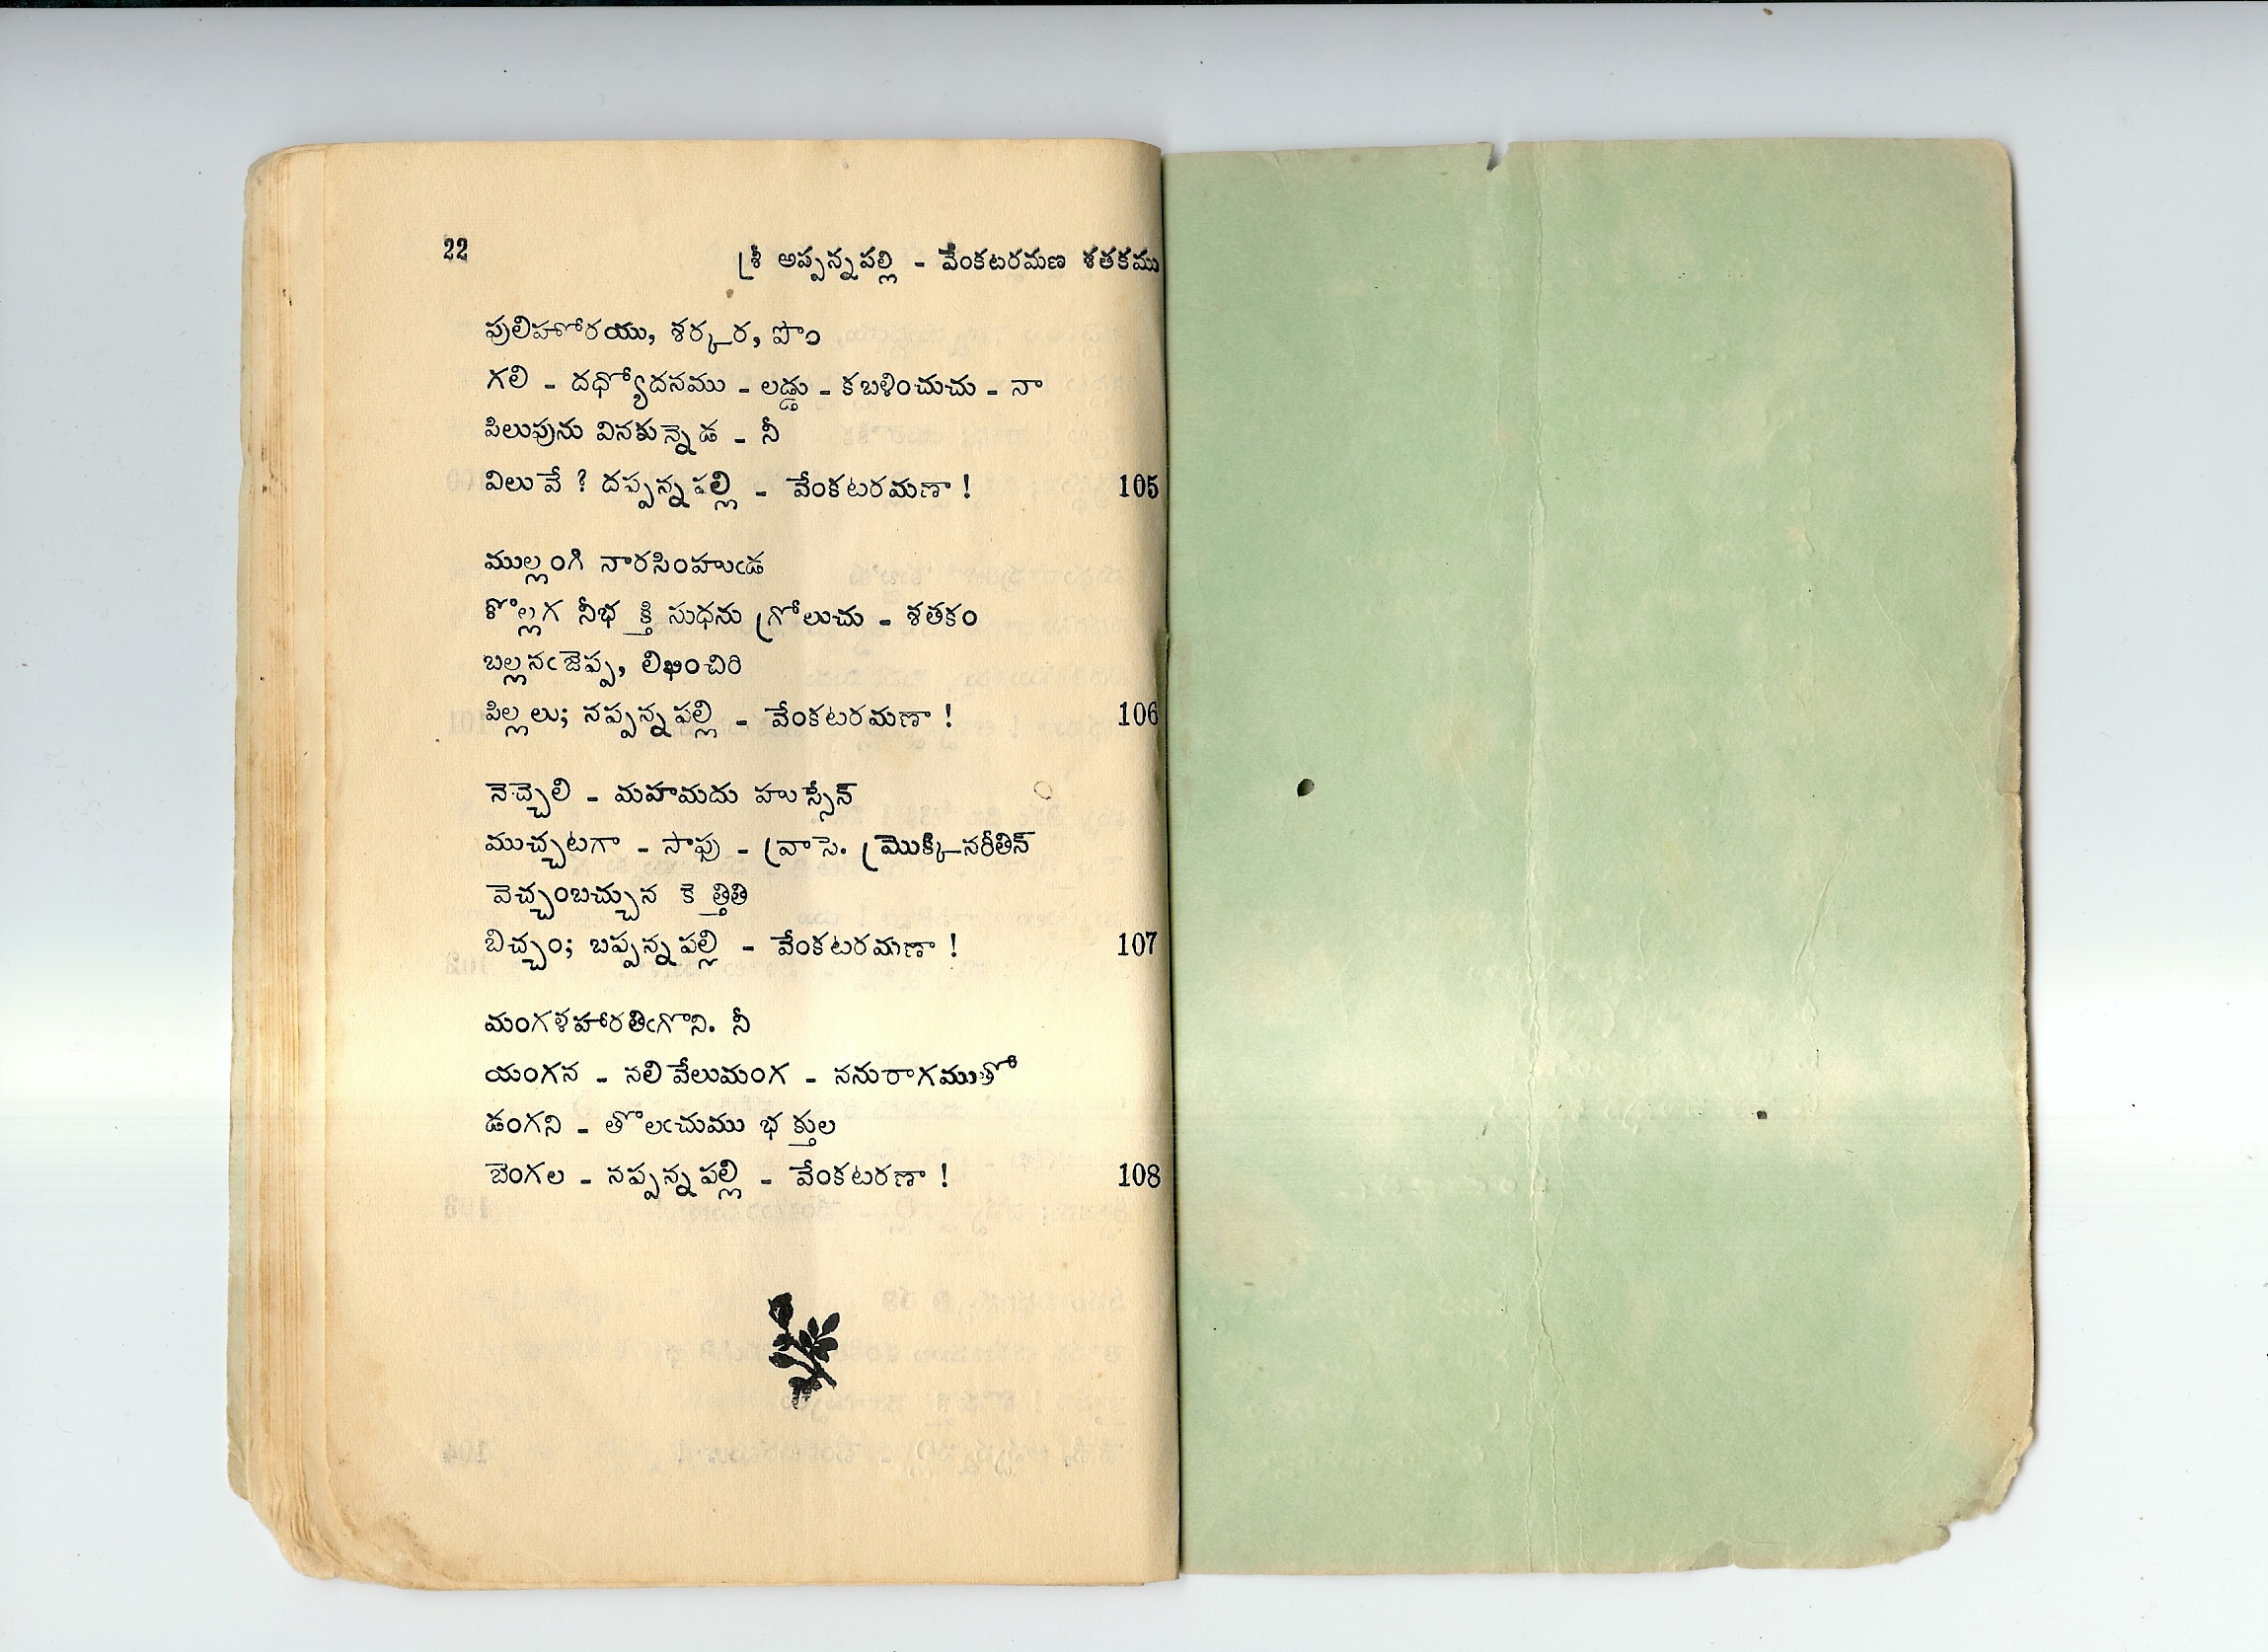 22
శ్రీ అప్పన్నపల్లి - వేంకటరమణ శతకము
పులిహోరయు, శర్కర, పొం
గలి - దధ్యోదనము - లడ్డు - కబళించుచు - నా
పిలుపును వినకున్నెడ - నీ
విలువే ? దప్పన్నపల్లి - వేంకటరమణా ! 105
ముల్లంగి నారసింహుఁడ
కొల్లగ నీభక్తి సుధను గ్రోలుచు - శతకం
బల్లనఁ జెప్ప, లిఖించిరి
పిల్లలు; నప్పన్నపల్లి - వేంకటరమణా ! 106
నెచ్చెలి - మహమదు హుస్సేన్
ముచ్చటగా - సాఫు - వ్రాసె. మ్రొక్కినరీతిన్
వెచ్చంబచ్చున కెత్తితి
బిచ్చం; బప్పన్నపల్లి - వేంకటరమణా ! 107
మంగళహారతిఁగొని. నీ
యంగన - నలివేలుమంగ - ననురాగముతో
డంగని - తొలఁచుము భక్తుల
బెంగల - నప్పన్నపల్లి - వేంకటరణా ! 108